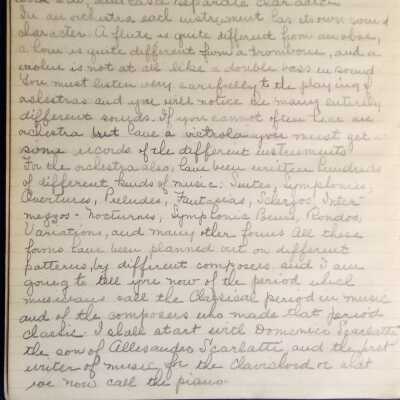 and each separate character.
In an orchestra each instrument has its own sound
character. A flute is quite different from an oboe,
a horn is quite different from a trombone, and a
violin is not at all like a double bass in sound
You must listen very carefully to the playing of
orchestras and you will notice the many entirely
different sounds. If you cannot often hear an
orchestra but have a victrola you must get
some records of the different instruments
For the orchestra also, have been written hundreds
of different kinds of music: Suites, Symphonies,
Overtures, Preludes, Fantasias, Scherzos, Inter
mezzos - Nocturnes, Symphonic Poems, Rondos,
Variations, and many other forms All these
forms have been planned out on different
patterns, by different composers and I am
going to tell you now of the period which
musicians call the Classical period in music
and of the composers who made that period
classic. I shall start with Domenico Scarlatti
the son of Allesandro Scarlatti and the first
writer of music for the Clavichord or what
we now call the piano